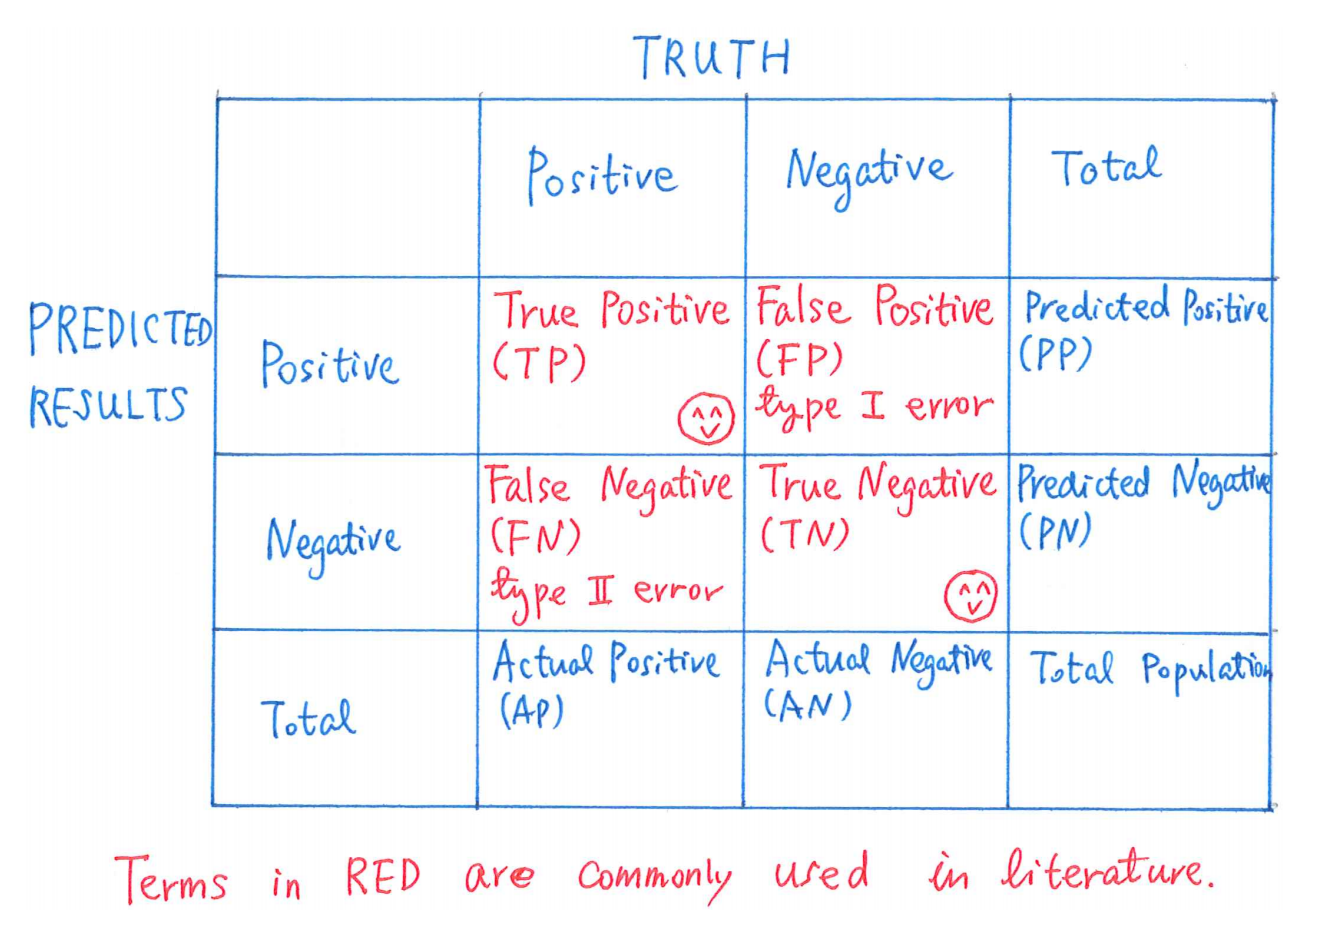 TRUTH
Positive
Negative
Total
PREDICTED
RESULTS
Positive
True Positive
(TP)
False Positive
(FP)
type I error
Predicted Positive
(PP)
Negative
False Negative
(FN)
type II error
True Negative
(TN)
Predicted Negative
(PN)
Total
Actual Positive
(AP)
Actual Negative
(AN)
Total Population
Terms in RED are commonly used in literature.